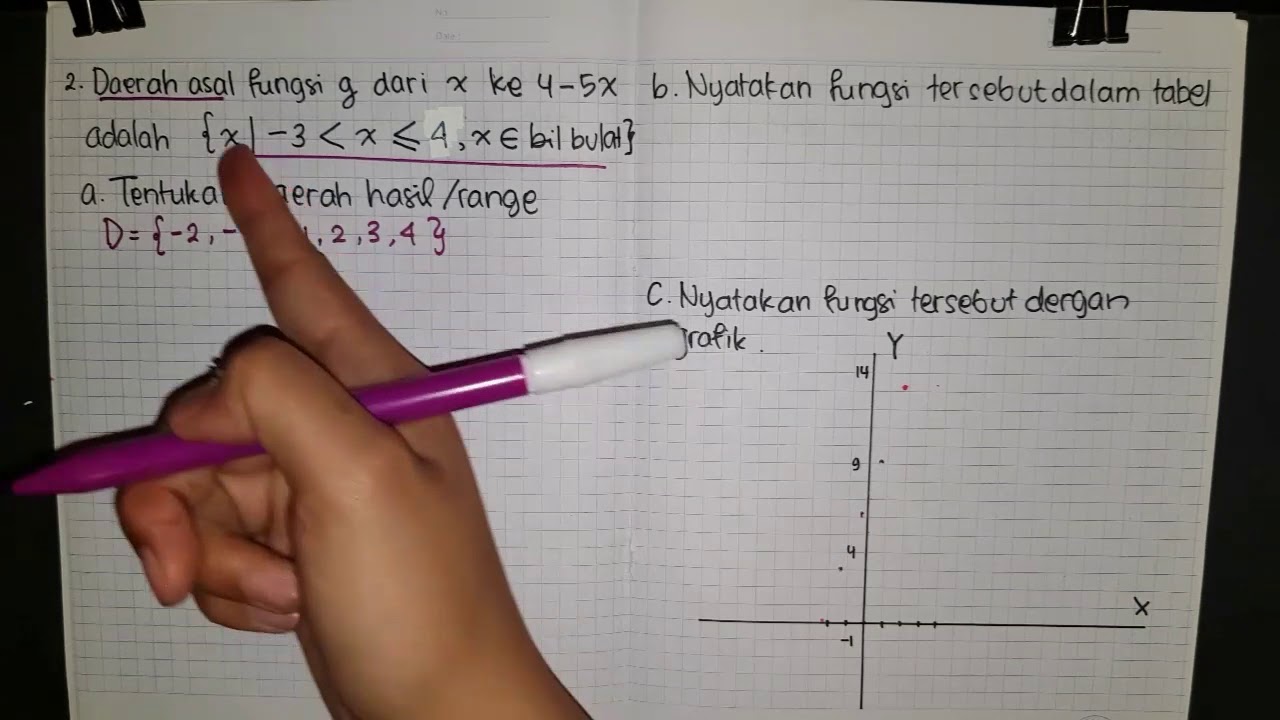 2. Daerah asal fungsi g dari x ke 4-5x
adalah {x| -3 < x ≤ 4, x ∈ bil bulat}
a. hasil/range
D = {-2, , 2, 3, 4}
b. Nyatakan fungsi tersebut dalam tabel
C. Nyatakan fungsi tersebut dengan
Y
14
9
4
X
-1